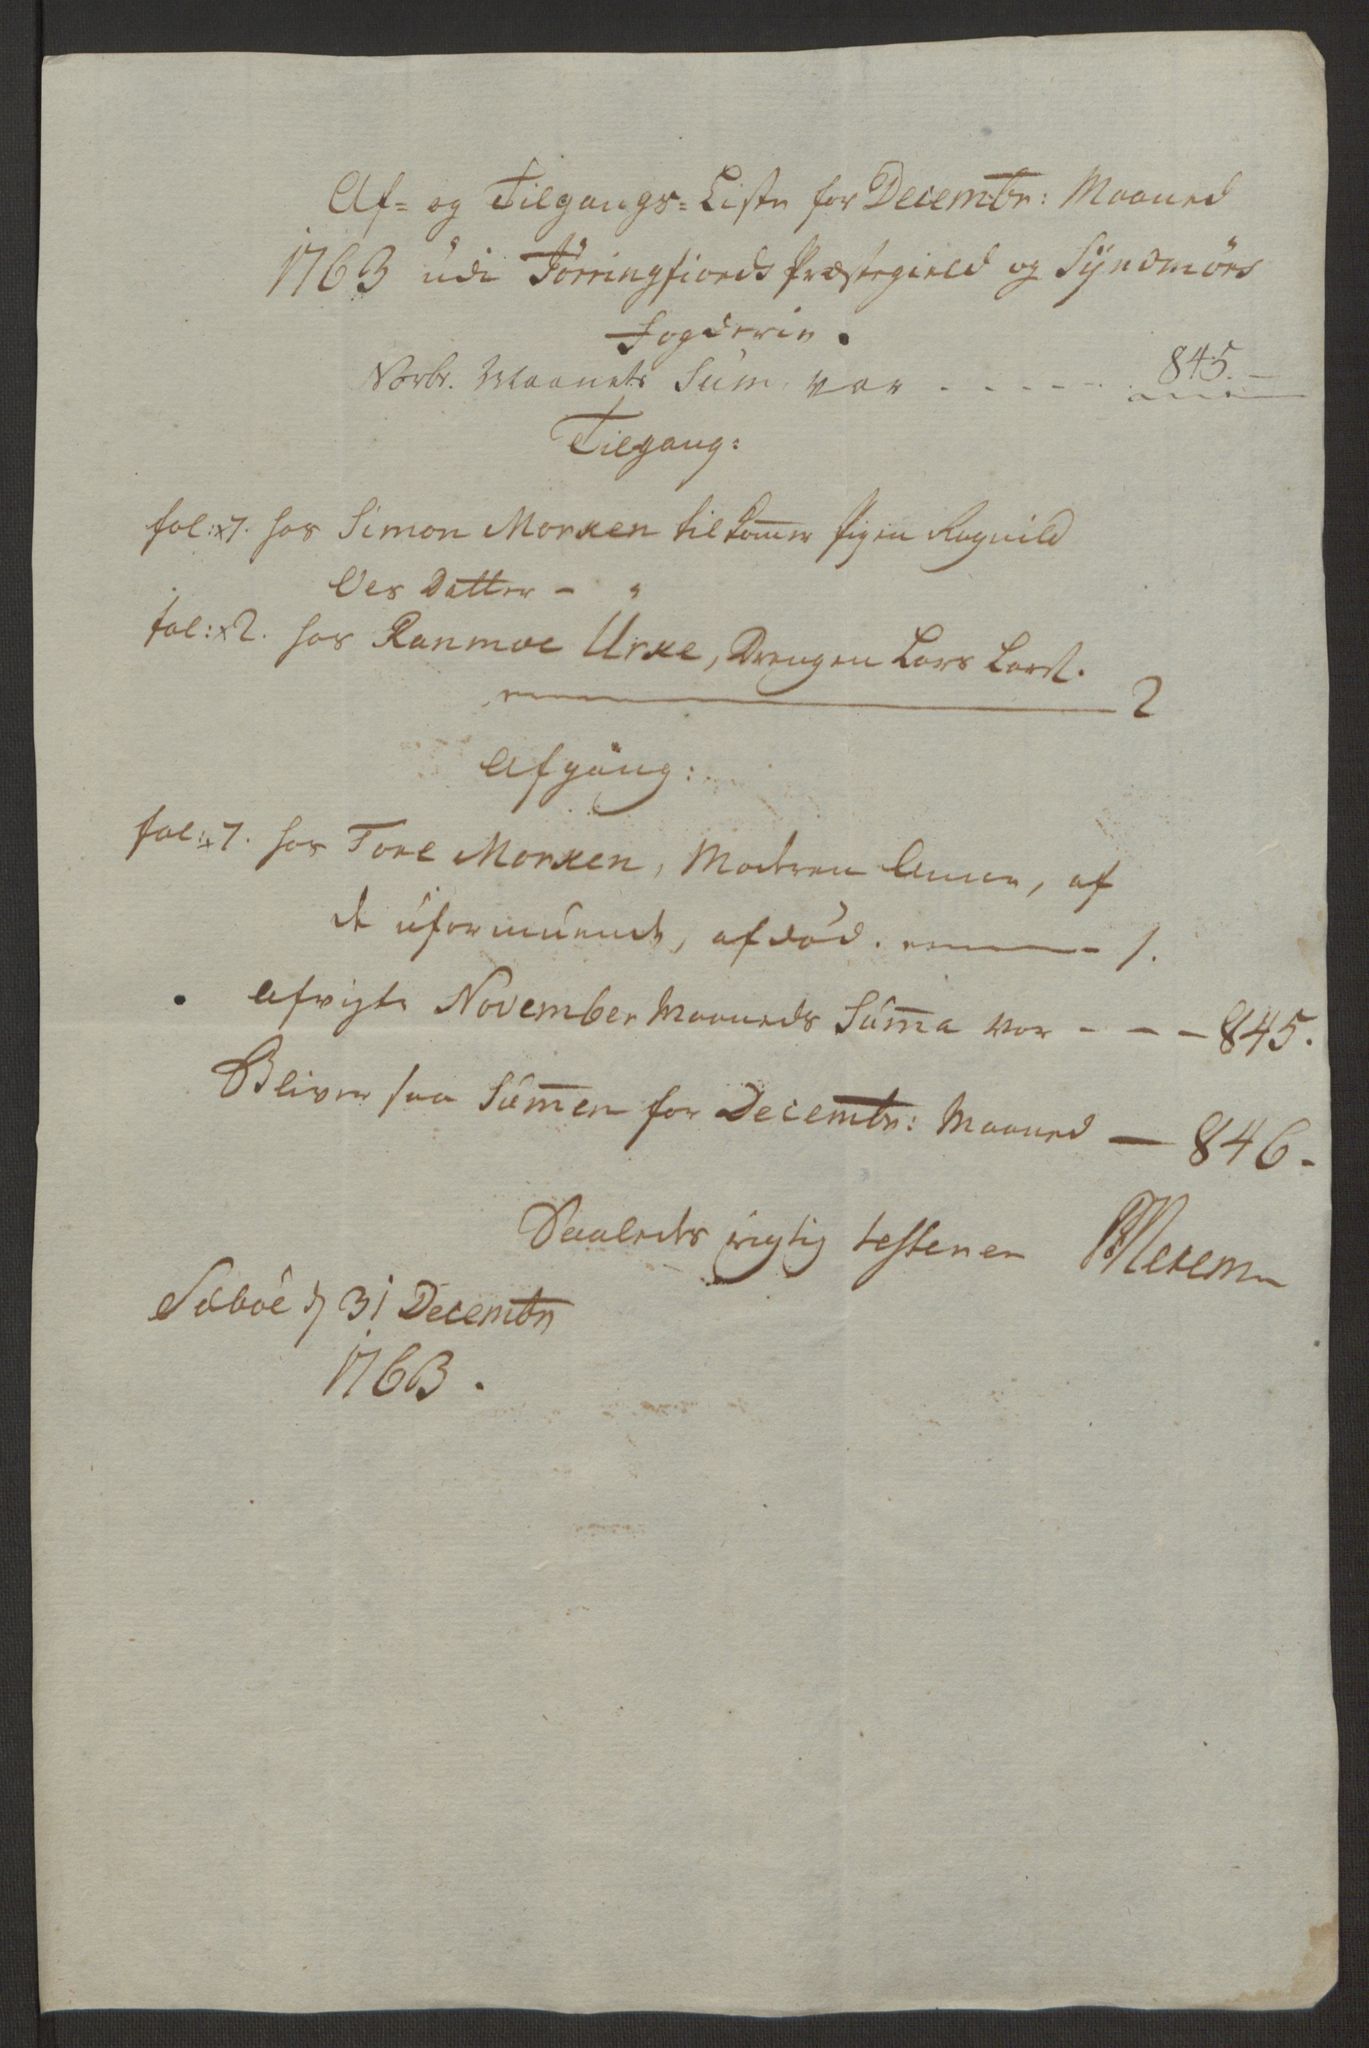 Af= og Tilgangs=Liste for Decembr: Maaned
1763 udi Jörringfiords Præstegield og Syndmörs
Fogderie.
Norbr. Maanets Sum var - - - - - 845.
Tilgang:
fol:x7. hos Simon Morken tilkom̄er Pigen Ragnild
Oles Datter - "
fol:x2. hos Ranmoe Urke, Drengen Lars Lars.
2
Afgang:
fol:x7. hos Tore Morken, Moderen Anne, af
de uformuende, afdöd. 1.
Afvigte November Maaneds Sum̄a var - - - 845.
Bliver saa Sum̄en for Decembr: Maaned — 846.
Saaledes rigtig testerer
Sæböe d 31 Decembr
1763.